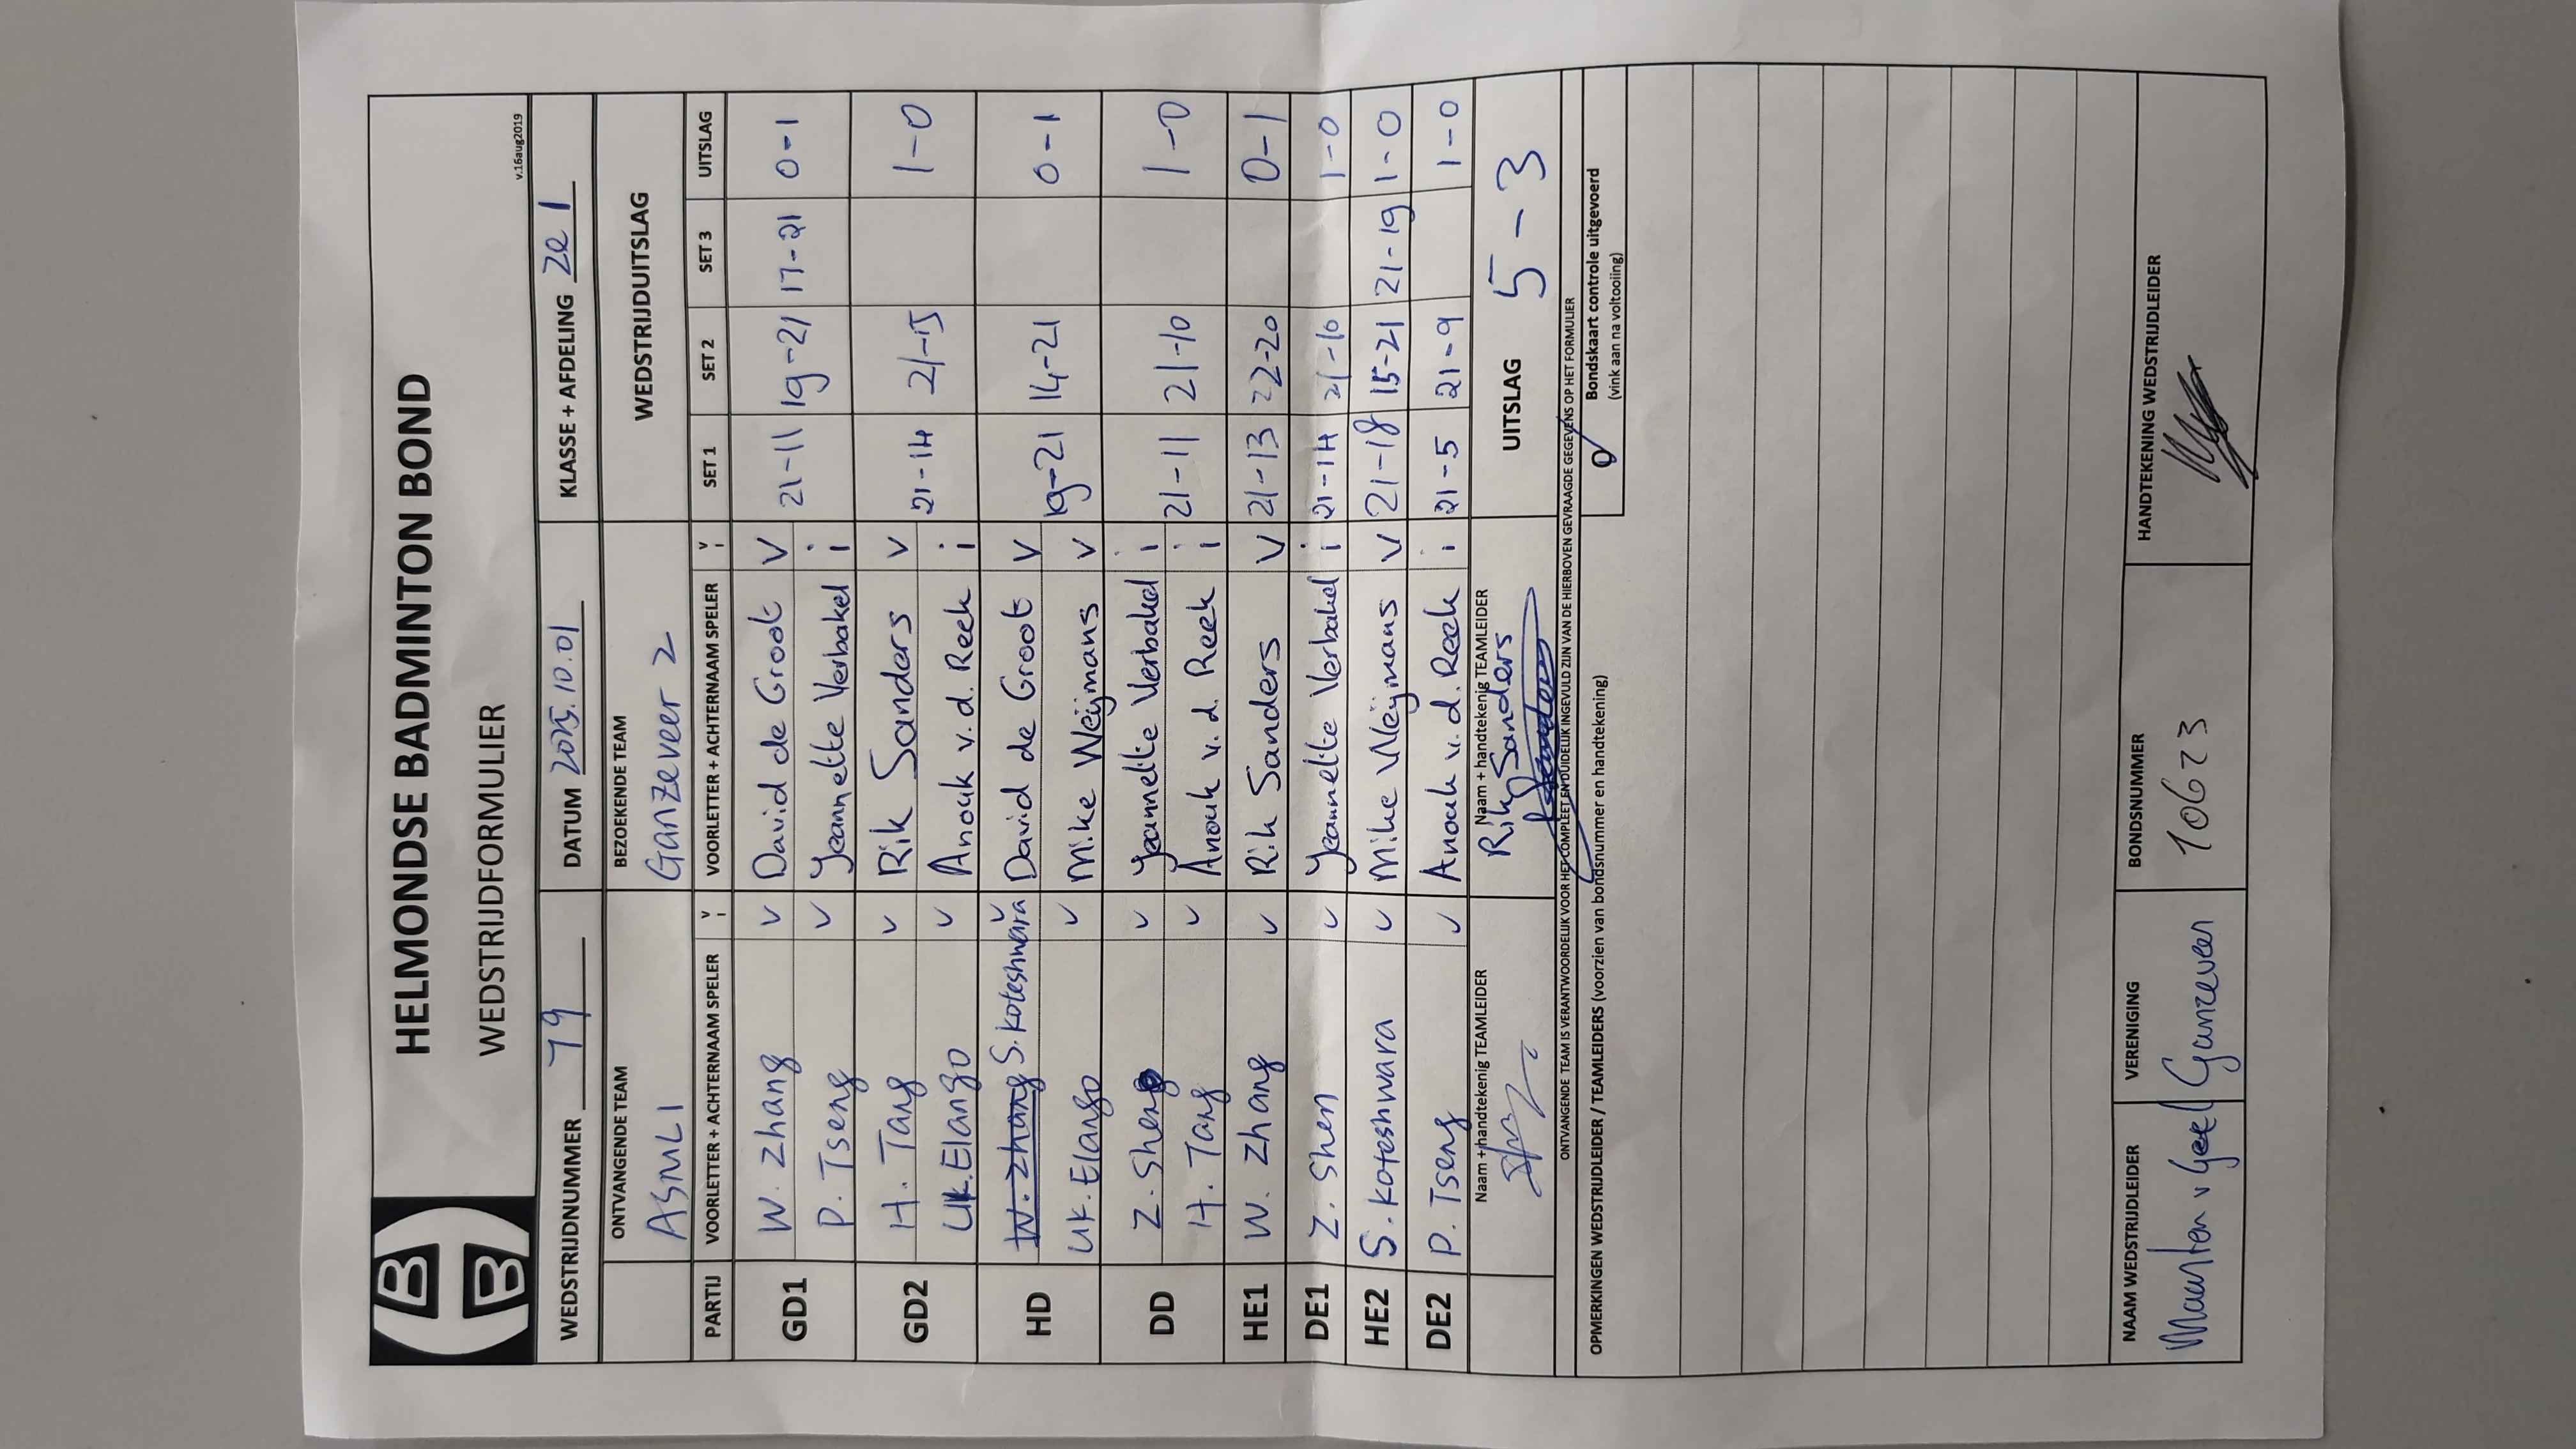 HELMONDSE BADMINTON BOND
WEDSTRIJDFORMULIER
v.16aug2019
WEDSTRIJDNUMMER 79 DATUM 2025.10.01 KLASSE + AFDELING 2e 1
ONTVANGENDE TEAM BEZOEKENDE TEAM WEDSTRIJDUITSLAG
ASML 1 Ganzeveer 2
PARTIJ VOORLETTER + ACHTERNAAM SPELER V I VOORLETTER + ACHTERNAAM SPELER V I SET 1 SET 2 SET 3 UITSLAG
GD1 W. Zhang v David de Groot V 21-11 19-21 17-21 0-1
P. Tseng v Jeannette Verbakel i
GD2 H. Tang v Rik Sanders v 21-14 21-15 1-0
UK. Elango v Anouk v.d. Reek i
HD W. Zhang S. Koteshwara v David de Groot V 19-21 14-21 0-1
UK. Elango v Mike Weijmans v
DD Z. Shen v Jeannette Verbakel i 21-11 21-10 1-0
H. Tang v Anouk v.d. Reek i
HE1 W. Zhang v Rik Sanders V 21-13 22-20 0-1
DE1 Z. Shen v Jeannette Verbakel i 21-14 21-10 1-0
HE2 S. Koteshwara v Mike Weijmans v 21-18 15-21 21-19 1-0
DE2 P. Tseng v Anouk v.d. Reek i 21-5 21-9 1-0
Naam + handtekenig TEAMLEIDER Naam + handtekenig TEAMLEIDER UITSLAG 5-3
Rik Sanders
ONTVANGENDE TEAM IS VERANTWOORDELIJK VOOR HET COMPLEET EN DUIDELIJK INGEVULD ZIJN VAN DE HIERBOVEN GEVRAAGDE GEGEVENS OP HET FORMULIER
OPMERKINGEN WEDSTRIJDLEIDER / TEAMLEIDERS (voorzien van bondsnummer en handtekening)
Bondskaart controle uitgevoerd
(vink aan na voltooiing)
NAAM WEDSTRIJDLEIDER VERENIGING BONDSNUMMER HANDTEKENING WEDSTRIJDLEIDER
Maarten v Geel Ganzeveer 10623